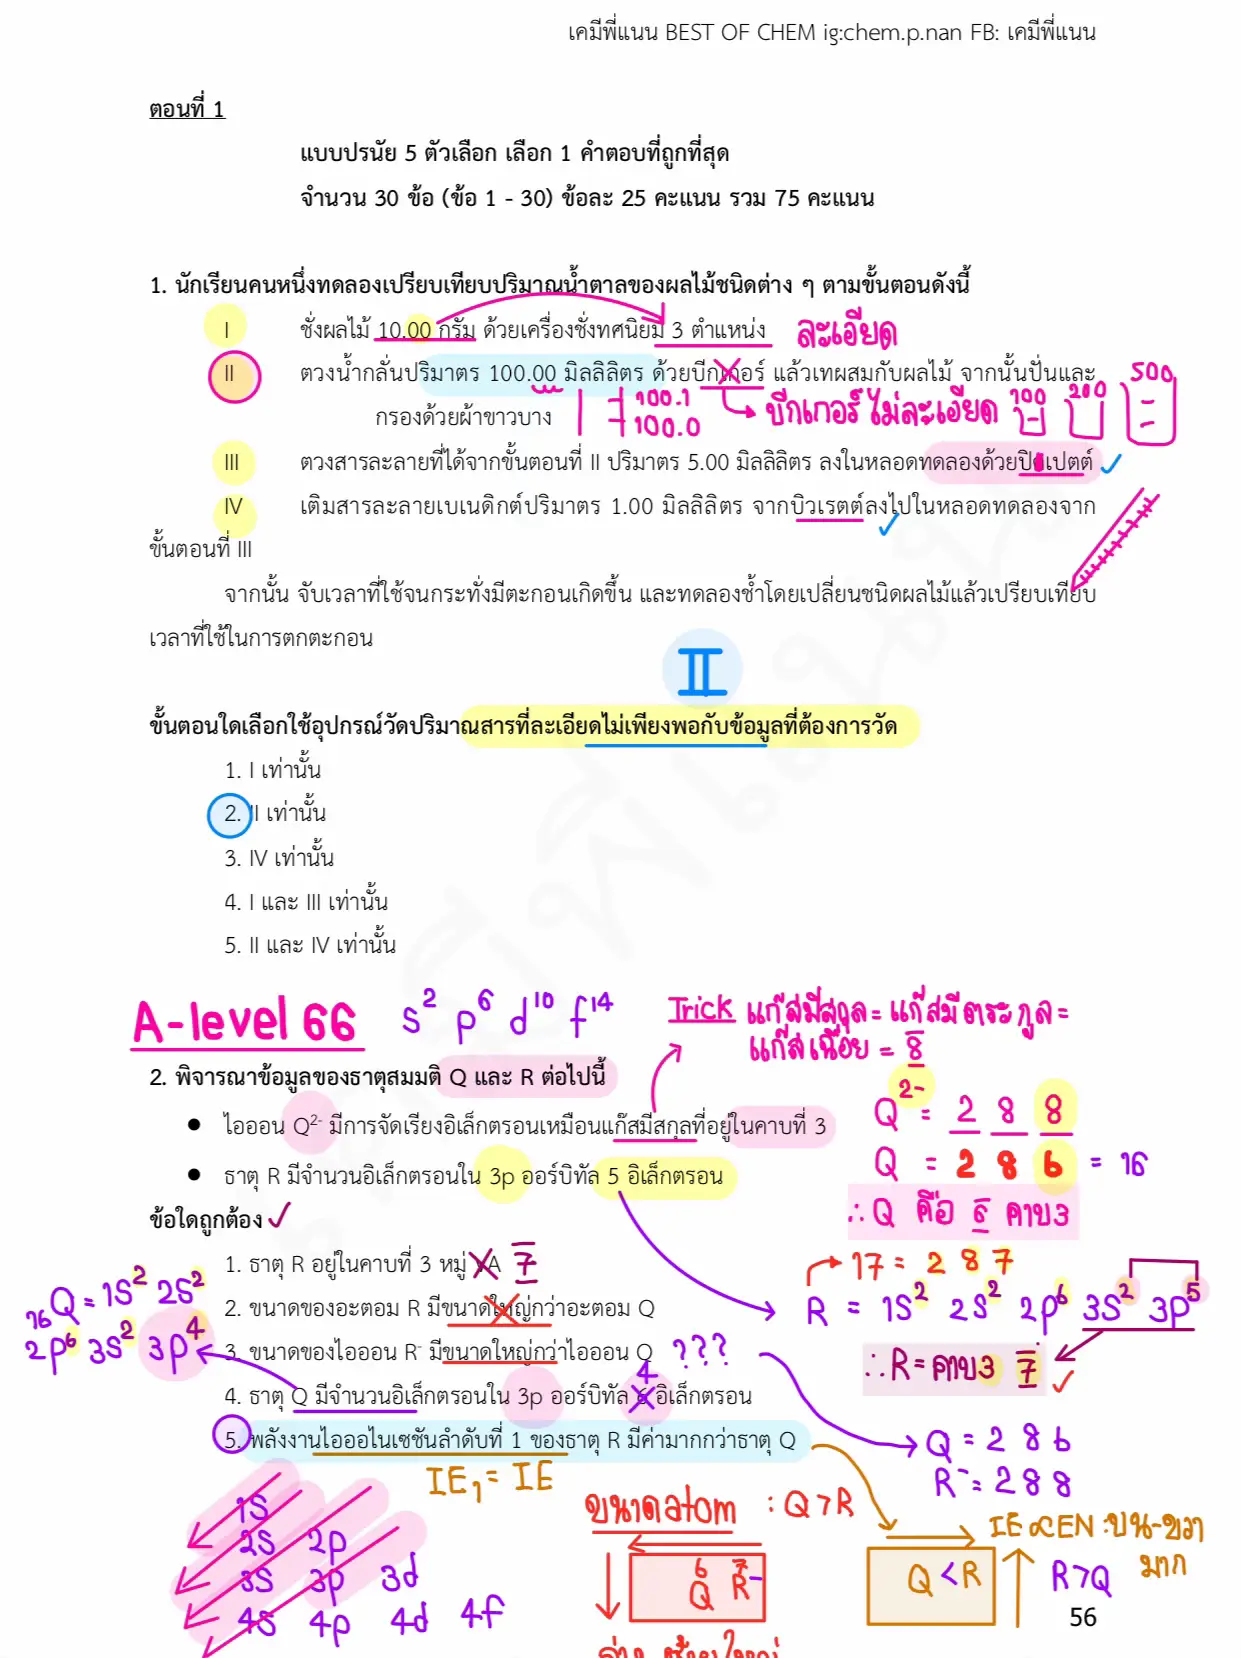 เคมีพี่แนน BEST OF CHEM ig:chem.p.nan FB: เคมีพี่แนน
ตอนที่ 1
แบบปรนัย 5 ตัวเลือก เลือก 1 คำตอบที่ถูกที่สุด
จำนวน 30 ข้อ (ข้อ 1 - 30) ข้อละ 25 คะแนน รวม 75 คะแนน
1. นักเรียนคนหนึ่งทดลองเปรียบเทียบปริมาณน้ำตาลของผลไม้ชนิดต่าง ๆ ตามขั้นตอนดังนี้
I ชั่งผลไม้ 10.00 กรัม ด้วยเครื่องชั่งทศนิยม 3 ตำแหน่ง ละเอียด
II ตวงน้ำกลั่นปริมาตร 100.00 มิลลิลิตร ด้วยบีกเกอร์ แล้วเทผสมกับผลไม้ จากนั้นปั่นและ
กรองด้วยผ้าขาวบาง
100.1
100.0
บีกเกอร์ ไม่ละเอียด 100 200 500
III ตวงสารละลายที่ได้จากขั้นตอนที่ II ปริมาตร 5.00 มิลลิลิตร ลงในหลอดทดลองด้วยปิเปตต์
IV เติมสารละลายเบเนดิกต์ปริมาตร 1.00 มิลลิลิตร จากบิวเรตต์ลงไปในหลอดทดลองจาก
ขั้นตอนที่ III
จากนั้น จับเวลาที่ใช้จนกระทั่งมีตะกอนเกิดขึ้น และทดลองซ้ำโดยเปลี่ยนชนิดผลไม้แล้วเปรียบเทียบ
เวลาที่ใช้ในการตกตะกอน
II
ขั้นตอนใดเลือกใช้อุปกรณ์วัดปริมาณสารที่ละเอียดไม่เพียงพอกับข้อมูลที่ต้องการวัด
1. I เท่านั้น
2. II เท่านั้น
3. IV เท่านั้น
4. I และ III เท่านั้น
5. II และ IV เท่านั้น
A-level 66 s² p⁶ d¹⁰ f¹⁴
Trick แก๊สมีสกุล = แก๊สมีตระกูล =
แก๊สเฉื่อย = 8
2. พิจารณาข้อมูลของธาตุสมมติ Q และ R ต่อไปนี้
• ไอออน Q²⁻ มีการจัดเรียงอิเล็กตรอนเหมือนแก๊สมีสกุลที่อยู่ในคาบที่ 3
Q²⁻ = 2 8 8
• ธาตุ R มีจำนวนอิเล็กตรอนใน 3p ออร์บิทัล 5 อิเล็กตรอน
Q = 2 8 6 = 16
∴ Q คือ 6 คาบ 3
ข้อใดถูกต้อง
1. ธาตุ R อยู่ในคาบที่ 3 หมู่ A 7
17 = 2 8 7
R = 1s² 2s² 2p⁶ 3s² 3p⁵
∴ R = คาบ 3 7
2. ขนาดของอะตอม R มีขนาดใหญ่กว่าอะตอม Q
₁₆Q = 1s² 2s²
2p⁶ 3s² 3p⁴
3. ขนาดของไอออน R⁻ มีขนาดใหญ่กว่าไอออน Q ???
4. ธาตุ Q มีจำนวนอิเล็กตรอนใน 3p ออร์บิทัล 6 อิเล็กตรอน
4
5. พลังงานไอออไนเซชันลำดับที่ 1 ของธาตุ R มีค่ามากกว่าธาตุ Q
Q = 2 8 6
R⁻ = 2 8 8
IE₁ = IE
1s
2s 2p
3s 3p 3d
4s 4p 4d 4f
ขนาด atom : Q > R
6 7
Q R⁻
IE ∝ EN : บน-ขวา
มาก
Q < R
R > Q
56